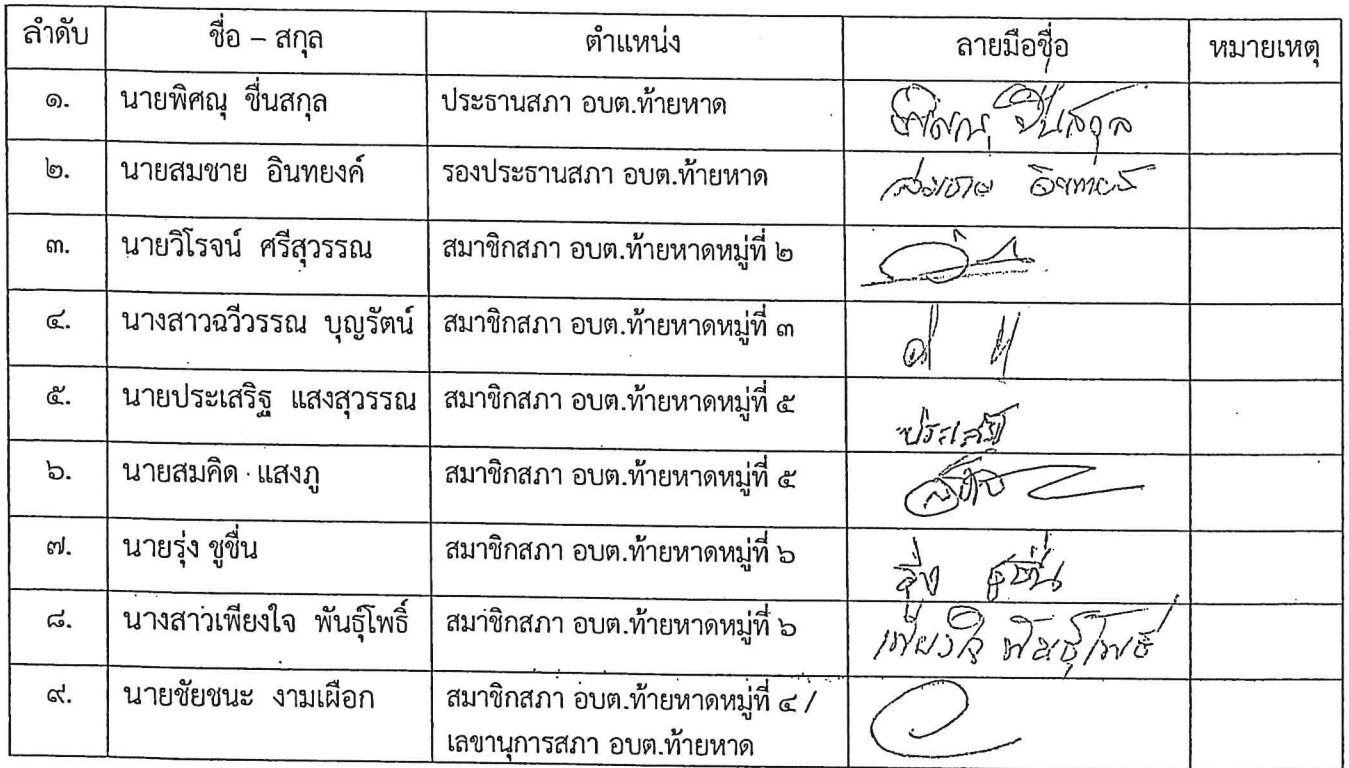 ลำดับ ชื่อ – สกุล ตำแหน่ง ลายมือชื่อ หมายเหตุ
๑. นายพิศณุ ชื่นสกุล ประธานสภา อบต.ท้ายหาด พิศณุ ชื่นสกุล
๒. นายสมชาย อินทยงค์ รองประธานสภา อบต.ท้ายหาด สมชาย
๓. นายวิโรจน์ ศรีสุวรรณ สมาชิกสภา อบต.ท้ายหาดหมู่ที่ ๒
๔. นางสาวฉวีวรรณ บุญรัตน์ สมาชิกสภา อบต.ท้ายหาดหมู่ที่ ๓
๕. นายประเสริฐ แสงสุวรรณ สมาชิกสภา อบต.ท้ายหาดหมู่ที่ ๕
๖. นายสมคิด แสงภู สมาชิกสภา อบต.ท้ายหาดหมู่ที่ ๕
๗. นายรุ่ง ชูชื่น สมาชิกสภา อบต.ท้ายหาดหมู่ที่ ๖ รุ่ง ชูชื่น
๘. นางสาวเพียงใจ พันธุ์โพธิ์ สมาชิกสภา อบต.ท้ายหาดหมู่ที่ ๖ เพียงใจ พันธุ์โพธิ์
๙. นายชัยชนะ งามเผือก สมาชิกสภา อบต.ท้ายหาดหมู่ที่ ๔ /
เลขานุการสภา อบต.ท้ายหาด